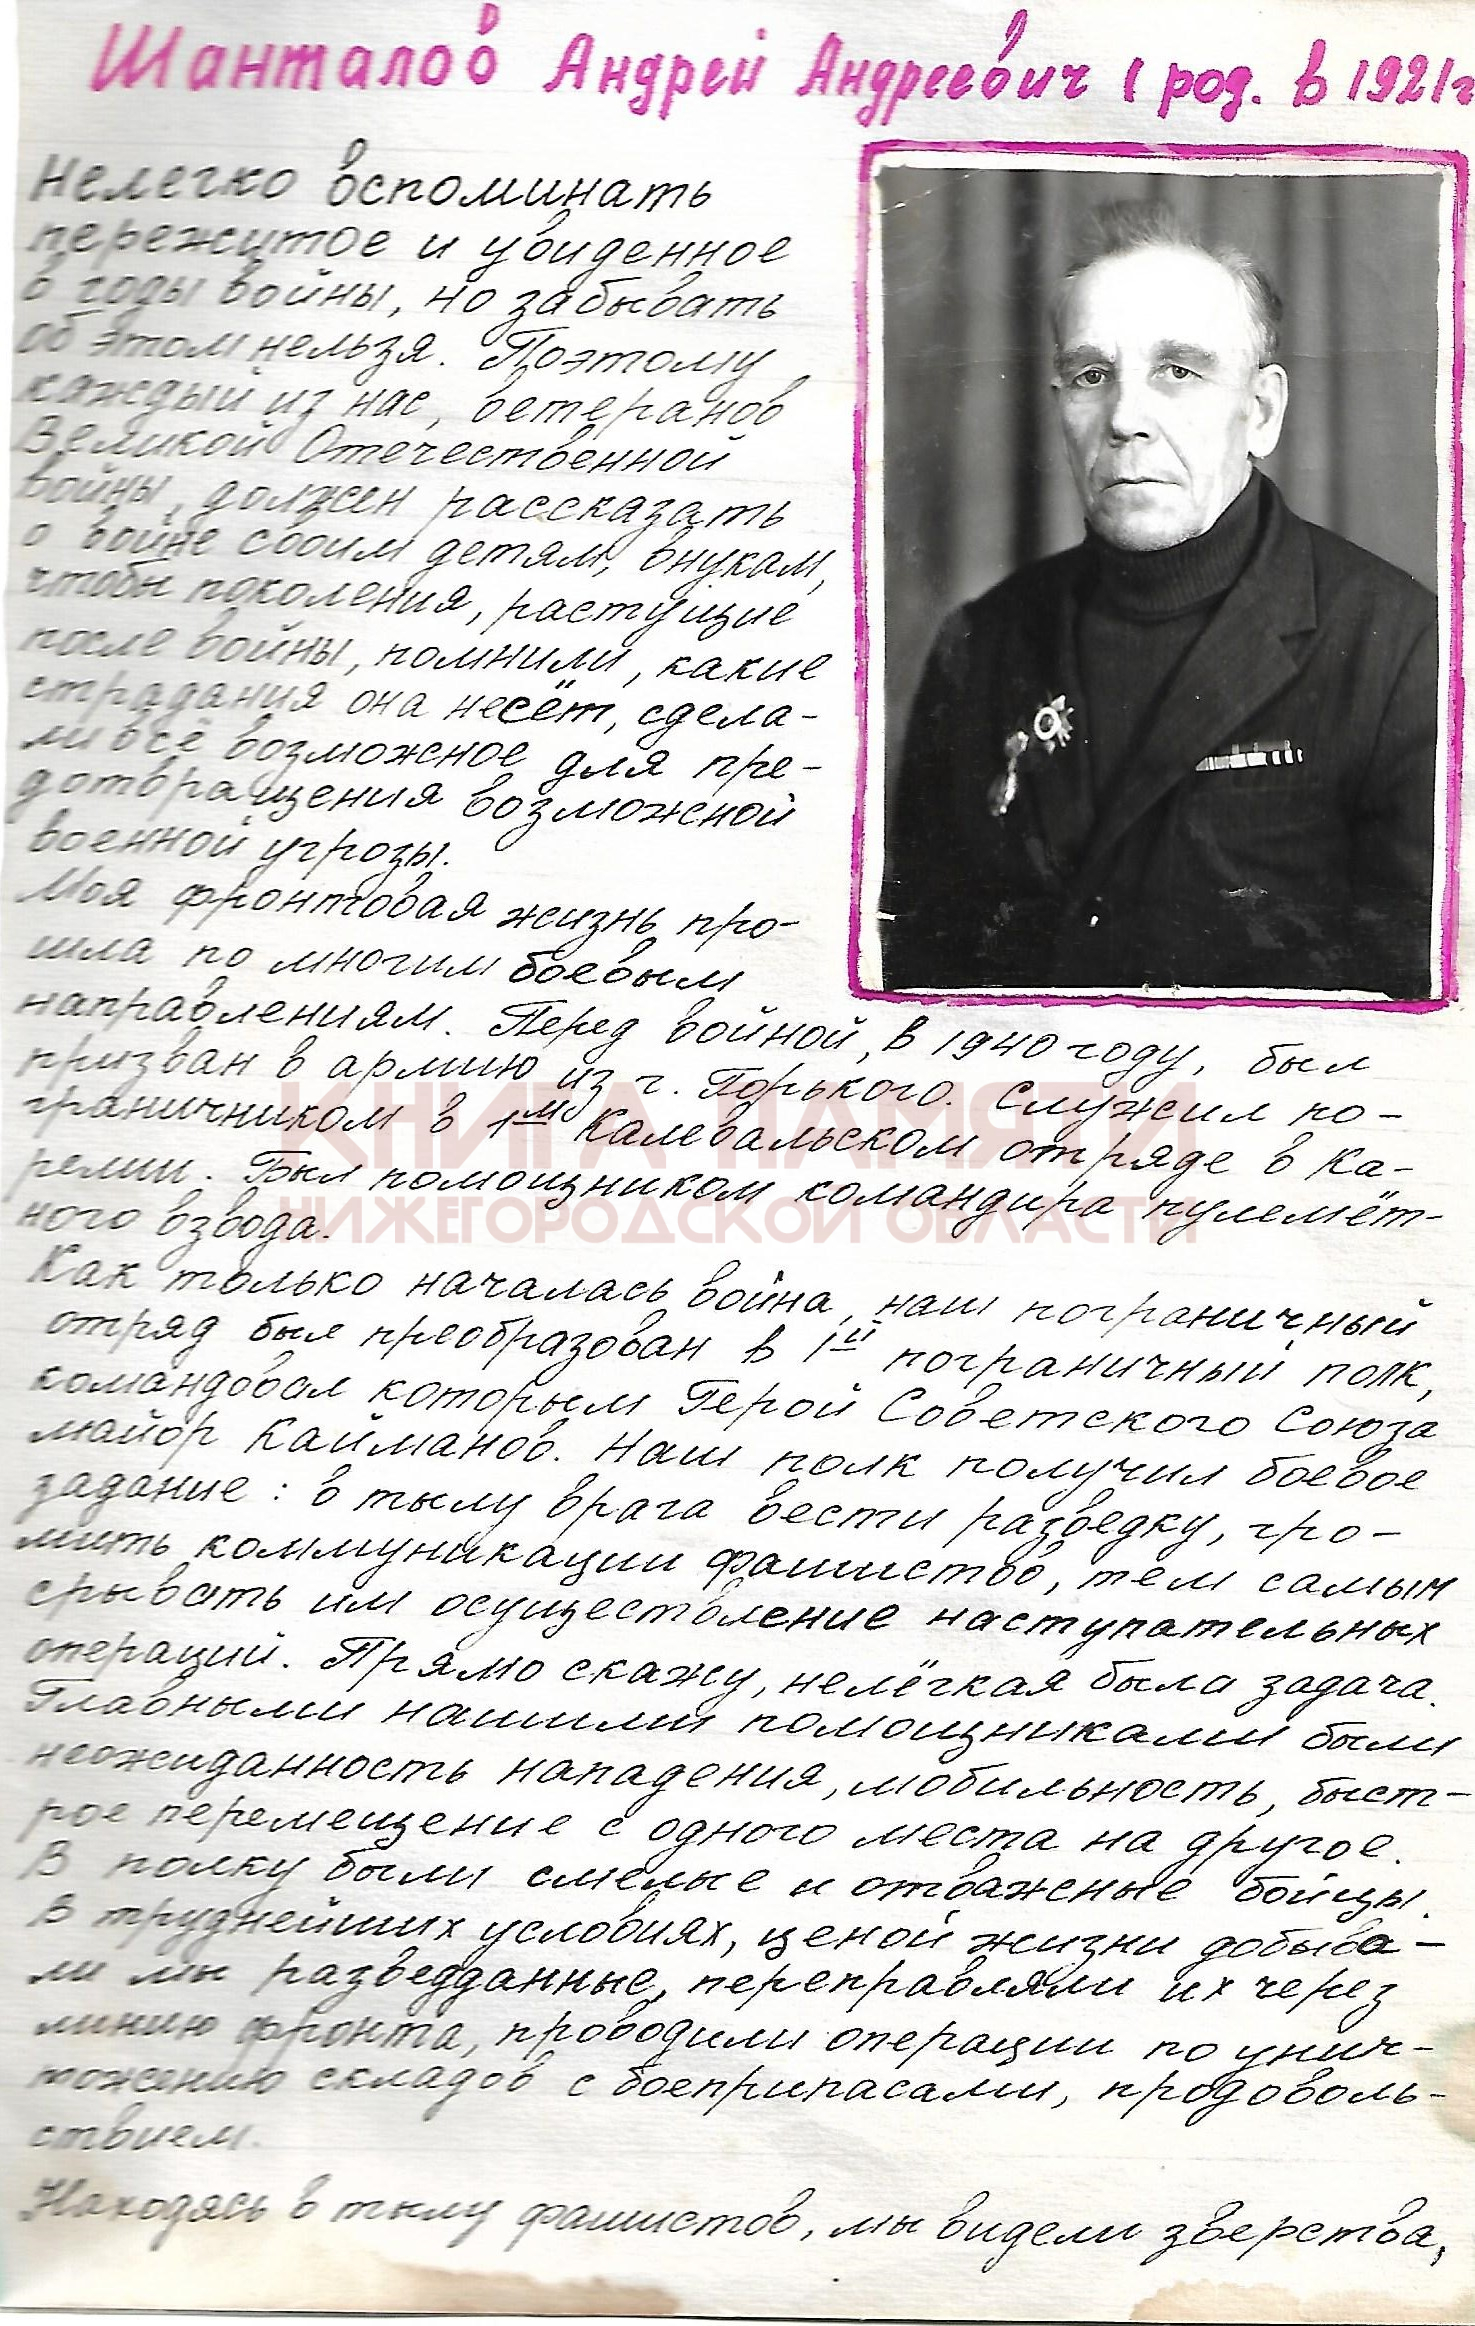 Шанталов Андрей Андреевич ( род. в 1921г
Нелегко вспоминать
пережитое и увиденное
в годы войны, но забывать
об этом нельзя. Поэтому
каждый из нас, ветеранов
Великой Отечественной
войны, должен рассказать
о войне своим детям, внукам,
чтобы поколения, растущие
после войны, помнили, какие
страдания она несёт, сдела-
ли всё возможное для пре-
дотвращения возможной
военной угрозы.
Моя фронтовая жизнь про-
шла по многим боевым
направлениям. Перед войной, в 1940 году, был
призван в армию из г. Горького. Служил по-
граничником в 1м Калевальском отряде в Ка-
релии. Был помощником командира пулемёт-
ного взвода.
КНИГА ПАМЯТИ
НИЖЕГОРОДСКОЙ ОБЛАСТИ
Как только началась война, наш пограничный
отряд был преобразован в 1й пограничный полк,
командовал которым Герой Советского Союза
майор Кайманов. Наш полк получил боевое
задание: в тылу врага вести разведку, гро-
мить коммуникации фашистов, тем самым
срывать им осуществление наступательных
операций. Прямо скажу, нелёгкая была задача.
Главными нашими помощниками были
неожиданность нападения, мобильность, быст-
рое перемещение с одного места на другое.
В полку были смелые и отважные бойцы.
В труднейших условиях, ценой жизни добыва-
ли мы разведданные, переправляли их через
линию фронта, проводили операции по унич-
тожению складов с боеприпасами, продоволь-
ствием.
Находясь в тылу фашистов, мы видели зверства,